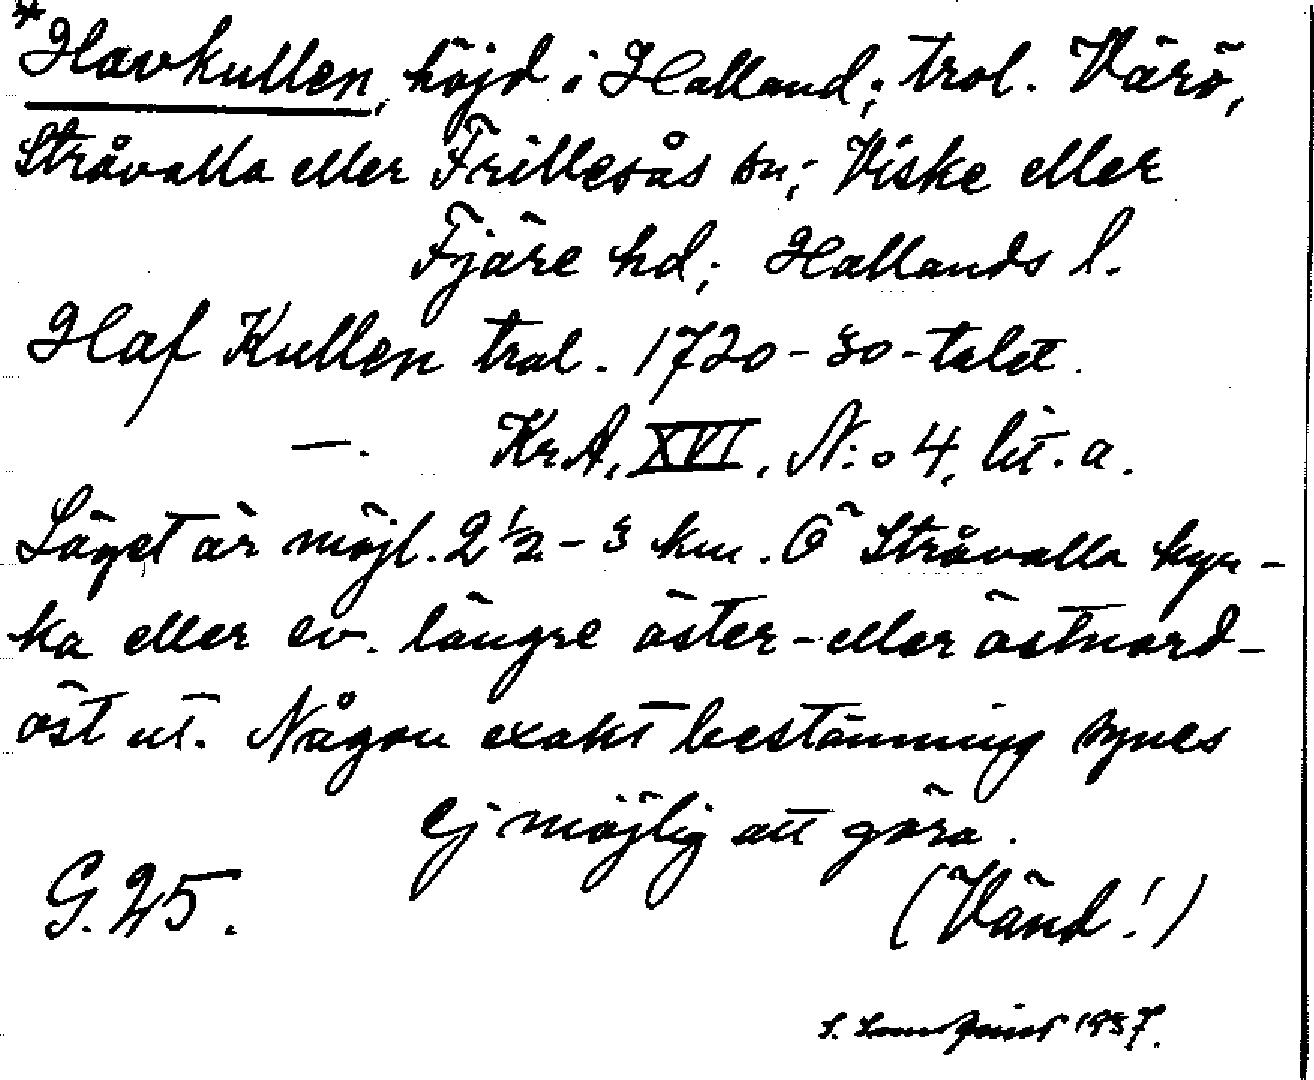 *Havkullen, höjd i Halland; trol. Värö,
Stråvalla eller Frillesås sn; Viske eller
Fjäre hd; Hallands l.
Haf Kullen trol. 1720-30-talet.
—. Kr.A, XVI, N:o 4, lit. a.
Läget är möjl. 2 1/2 - 3 km. Ö Stråvalla kyr-
ka eller ev. längre öster- eller ostnord-
öst ut. Någon exakt bestämning synes
ej möjlig att göra.
G. 25. (Vänd!)
1937.